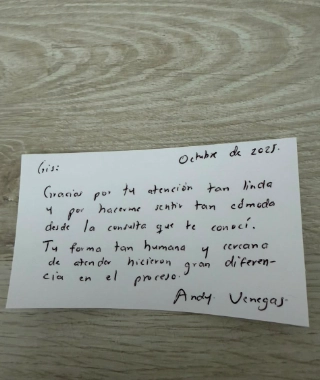 Octubre de 2025.
Gis:
Gracias por tu atención tan linda
y por hacerme sentir tan cómoda
desde la consulta que te conocí.
Tu forma tan humana y cercana
de atender hicieron gran diferen-
cia en el proceso.
Andy Venegas.